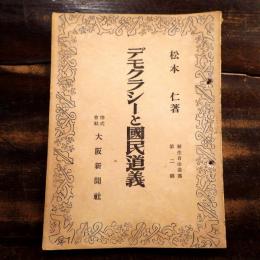 松本 仁著
デモクラシーと國民道義
新生自由叢書
第二輯
株式
會社
大阪新聞社